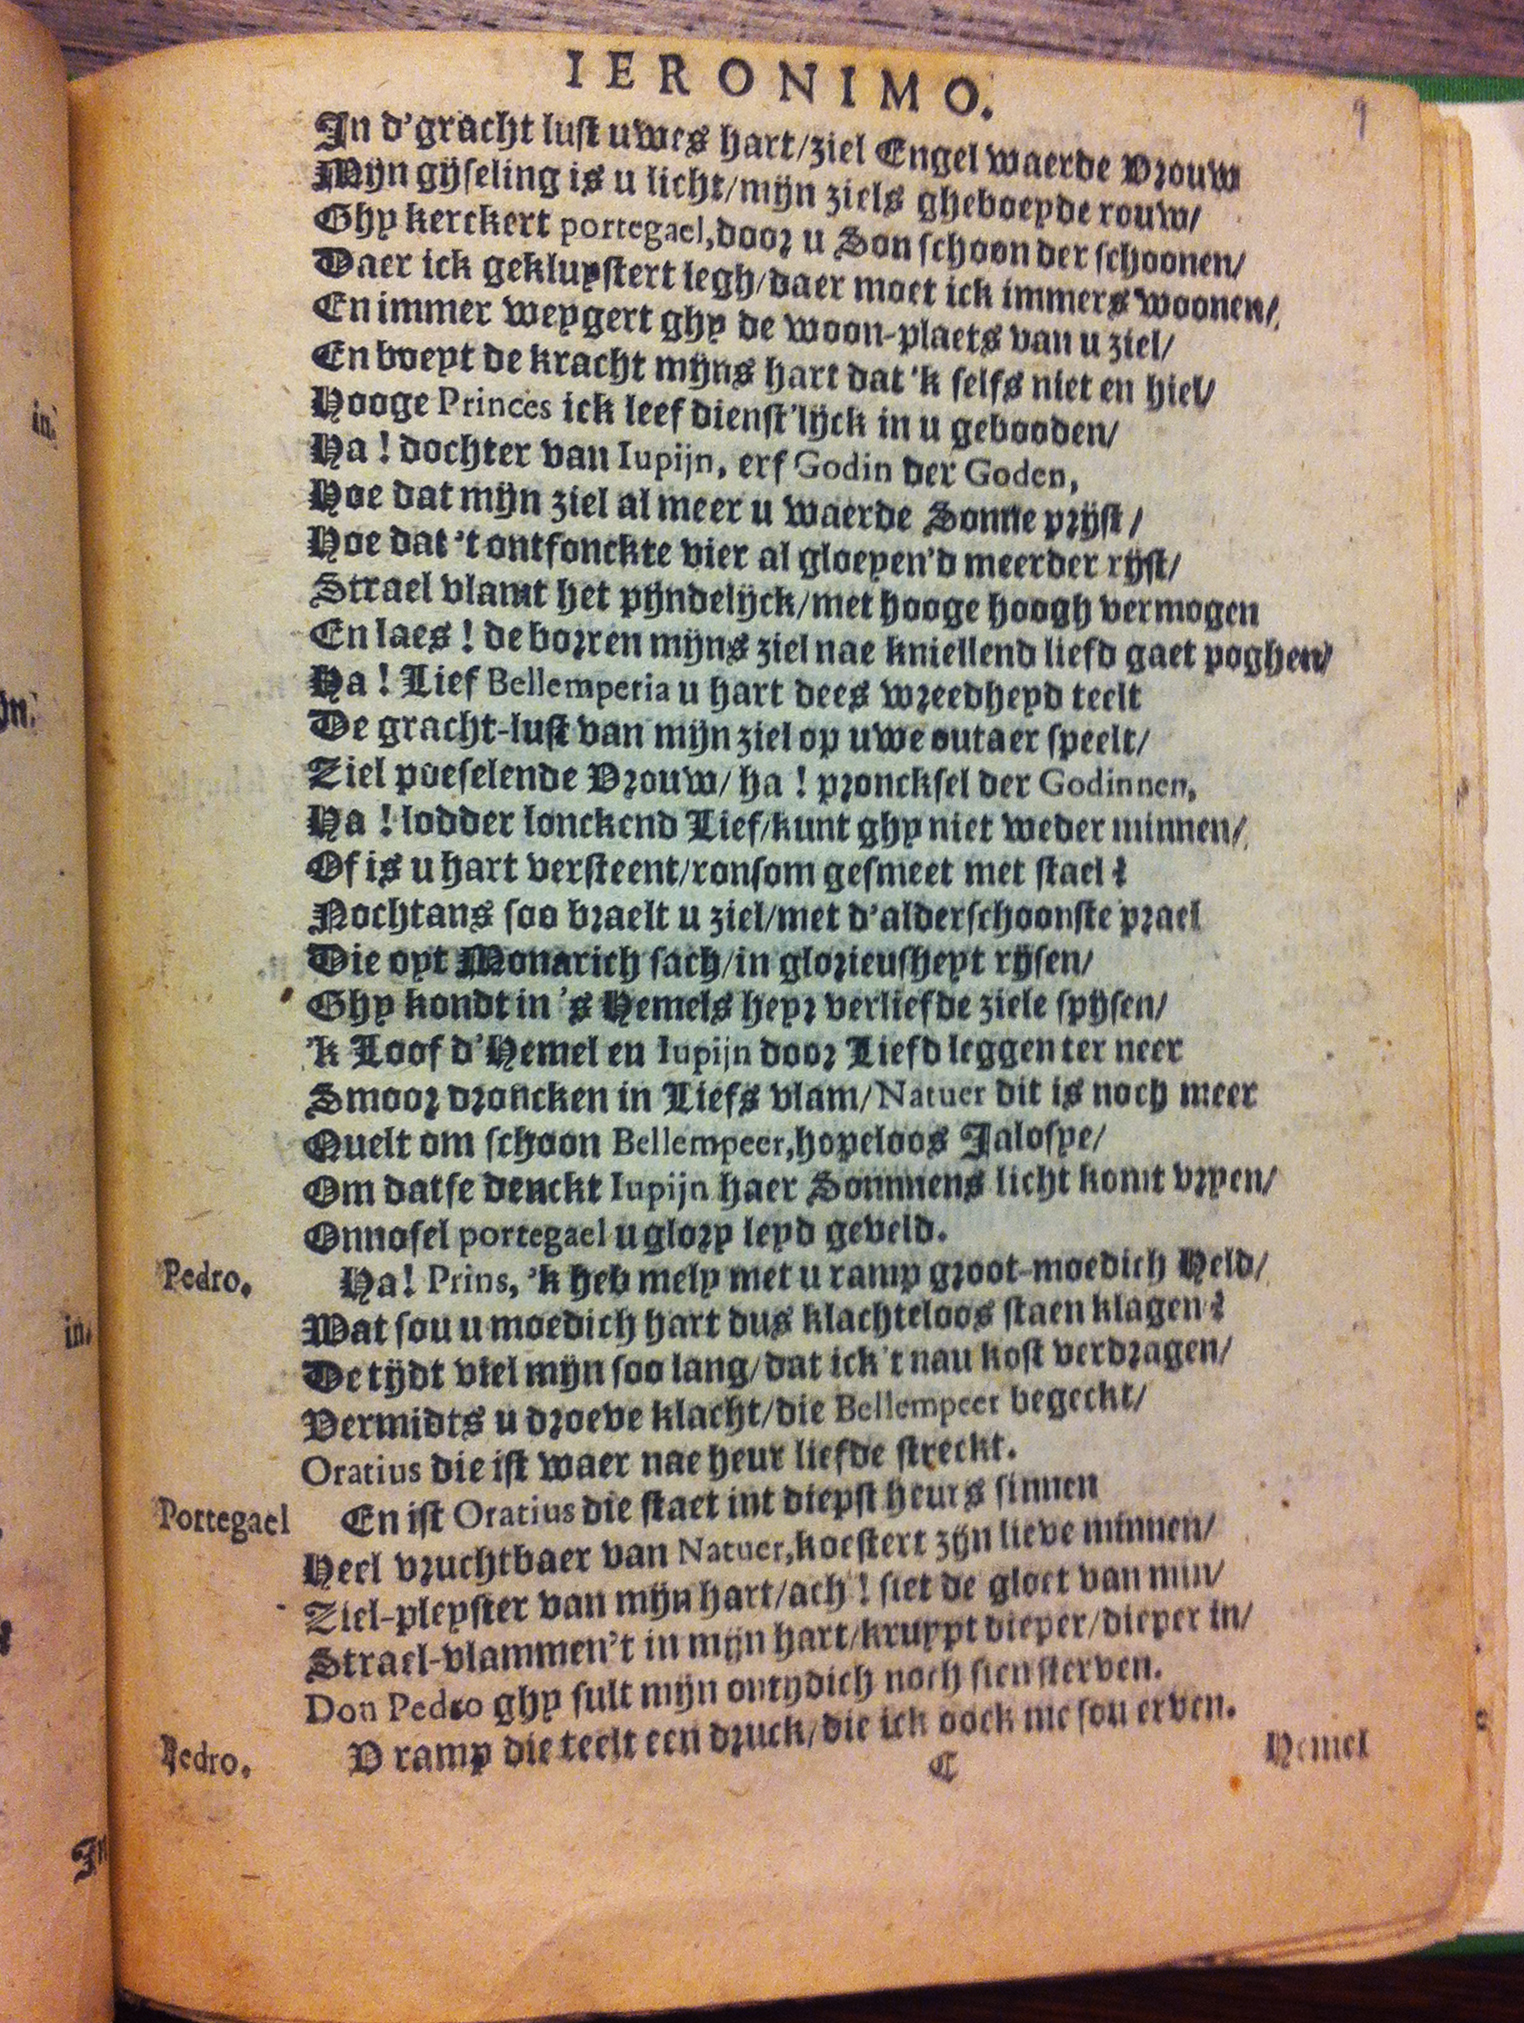 IERONIMO.
9
In d'gracht lust uwes hart/ziel Engel waerde Vrouw
Mijn gijseling is u licht/mijn ziels gheboeyde rouw/
Ghy kerckert portegael,door u Son schoon der schoonen/
Daer ick gekluystert legh/daer moet ick immers woonen/
En immer weygert ghy de woon-plaets van u ziel/
En boeyt de kracht mijns hart dat 'k selfs niet en hiel/
Hooge Princes ick leef dienst'lijck in u gebooden/
Ha ! dochter van Iupijn, erf Godin der Goden,
Hoe dat mijn ziel al meer u waerde Sonne prijst/
Hoe dat 't ontfonckte vier al gloeyen'd meerder rijst/
Strael vlamt het pijndelijck/met hooge hoogh vermogen
En laes ! de borren mijns ziel nae kniellend liefd gaet poghen/
Ha ! Lief Bellemperia u hart dees wreedheyd teelt
De gracht-lust van mijn ziel op uwe outaer speelt/
Ziel poeselende Vrouw/ ha ! proncksel der Godinnen,
Ha ! lodder lonckend Lief/kunt ghy niet weder minnen/
Of is u hart versteent/ronsom gesmeet met stael?
Nochtans soo braelt u ziel/met d'alderschoonste prael
Die oyt Monarich sach/in glorieusheyt rijsen/
Ghy kondt in 's Hemels heyr verliefde ziele spijsen/
'k Loof d'Hemel en Iupijn door Liefd leggen ter neer
Smoor droncken in Liefs vlam/Natuer dit is noch meer
Quelt om schoon Bellempeer,hopeloos Jalosye/
Om datse denckt Iupijn haer Sonnnens licht komt vryen/
Onnosel portegael u glory leyd geveld.
Pedro. Ha! Prins, 'k heb mely met u ramp groot-moedich Held/
Wat sou u moedich hart dus klachteloos staen klagen?
De tijdt viel mijn soo lang/dat ick't nau kost verdragen/
Vermidts u droeve klacht/die Bellempeer begeckt/
Oratius die ist waer nae heur liefde streckt.
Portegael En ist Oratius die staet int diepst heurs sinnen
Heel vruchtbaer van Natuer,koestert zijn lieve minnen/
Ziel-pleyster van mijn hart/ach ! siet de gloet van min/
Strael-vlammen't in mijn hart/kruypt dieper/dieper in/
Don Pedro ghy sult mijn ontydich noch sien sterven.
Pedro. O ramp die teelt een druck/die ick oock me sou erven.
C Hemel